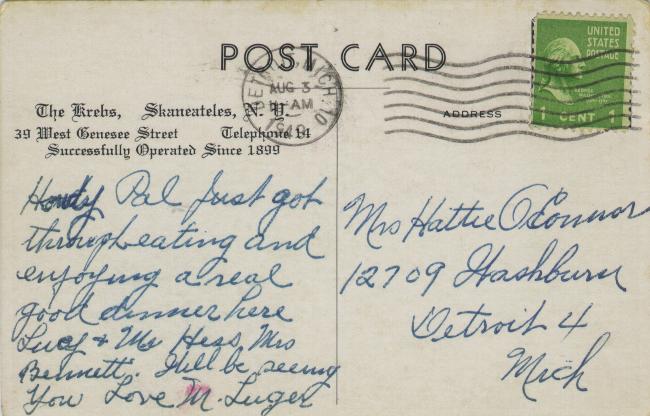 POST CARD
DETROIT, MICH. 10
AUG 3
AM
1940
UNITED
STATES
POSTAGE
GEORGE
WASHINGTON
1 CENT 1
The Krebs, Skaneateles, N. Y.
39 West Genesee Street Telephone 14
Successfully Operated Since 1899
ADDRESS
Howdy Pal Just got
through eating and
enjoying a real
good dinner here
Lucy & Mr Hess, Mrs
Bennett. Will be seeing
You Love M. Luger
Mrs Hattie O'Connor
12709 Washburn
Detroit 4
Mich